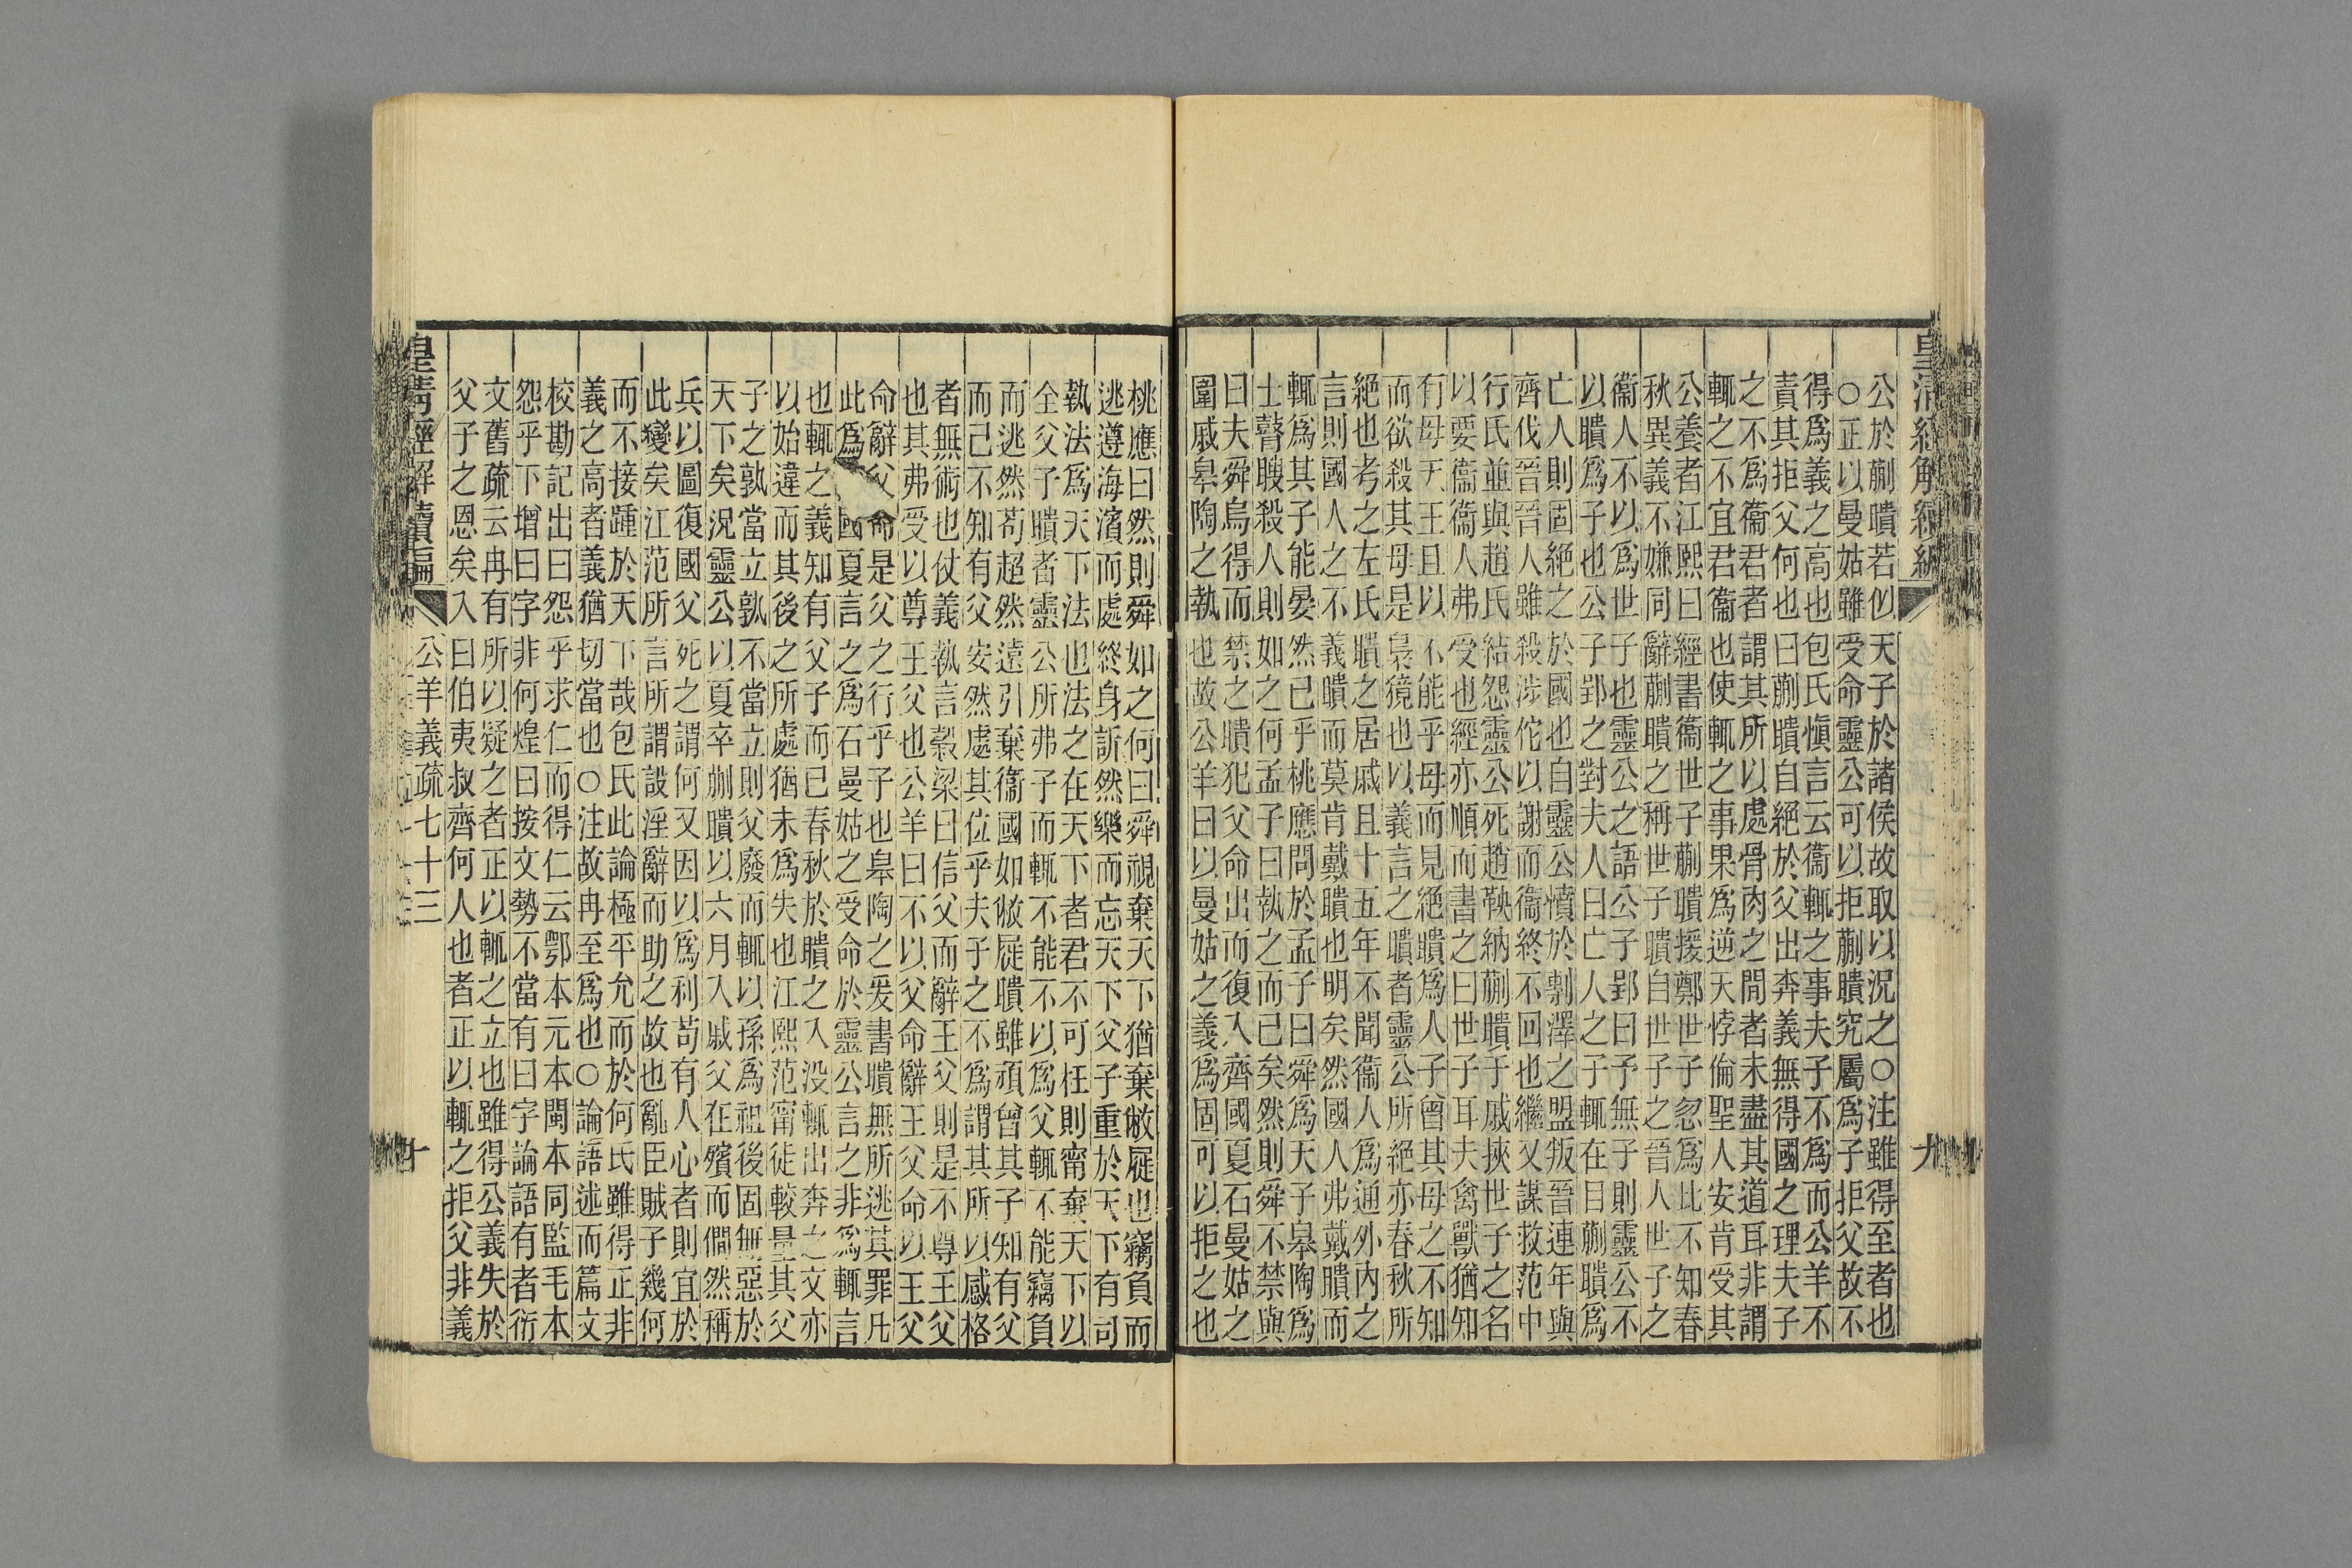 皇清經解續編
九
公於蒯聵若似天子於諸侯故取以況之○注雖得至者也
○正以曼姑雖受命靈公可以拒蒯聵究屬爲子拒父故不
得爲義之高也包氏愼言云衞輒之事夫子不爲而公羊不
責其拒父何也曰蒯聵自絕於父出奔義無得國之理夫子
之不爲衞君者謂其所以處骨肉之閒者未盡其道耳非謂
輒之不宜君衞也使輒之事果爲逆天悖倫聖人安肯受其
公養者江熙曰經書衞世子蒯聵援鄭世子忽爲比不知春
秋異義不嫌同辭蒯聵之稱世子聵自世子之晉人世子之
衞人不以爲世子也靈公之語公子郢曰予無子則靈公不
以聵爲子也公子郢之對夫人曰亡人之子輒在目蒯聵爲
亡人則固絕之於國也自靈公憤於剸澤之盟叛晉連年與
齊伐晉晉人雖殺涉佗以謝而衞終不回也繼又謀救范中
行氏並與趙氏結怨靈公死趙鞅納蒯聵于戚挾世子之名
以要衞衞人弗受也經亦順而書之曰世子耳夫禽獸猶知
有母天王且以不能乎母而見絕聵爲人子曾其母之不知
而欲殺其母是梟獍也以義言之聵者靈公所絕亦春秋所
絕也考之左氏聵之居戚且十五年不聞衞人爲通外內之
言則國人之不義聵而莫肯戴聵也明矣然國人弗戴聵而
輒爲其子能晏然已乎桃應問於孟子曰舜爲天子皋陶爲
士瞽瞍殺人則如之何孟子曰執之而已矣然則舜不禁與
曰夫舜烏得而禁之聵犯父命出而復入齊國夏石曼姑之
圍戚皋陶之執也故公羊曰以曼姑之義爲固可以拒之也
桃應曰然則舜如之何曰舜視棄天下猶棄敝屣也竊負而
逃遵海濱而處終身訢然樂而忘天下父子重於天下有司
執法爲天下法也法之在天下者君不可枉則甯棄天下以
全父子聵者靈公所弗子而輒不能不以爲父輒不能竊負
而逃然苟超然遠引棄衞國如敝屣聵雖頑曾其子知有父
而己不知有父安然處其位乎夫子之不爲謂其所以感格
者無術也仗義執言穀梁曰信父而辭王父則是不尊王父
也其弗受以尊王父也公羊曰不以父命辭王父命以王父
命辭父命是父之行乎子也皋陶之爰書聵無所逃其罪凡
此爲國夏言之爲石曼姑之受命於靈公言之非爲輒言
也輒之義知有父子而已春秋於聵之入沒輒出奔之文亦
以始違而其後之所處猶未爲失也江熙范甯徒較量其父
子之孰當立孰不當立則父廢而輒以孫爲祖後固無惡於
天下矣況靈公以夏卒蒯聵以六月入戚父在殯而僩然稱
兵以圖復國父死之謂何又因以爲利苟有人心者則宜於
此變矣江范所言所謂設淫辭而助之故也亂臣賊子幾何
而不接踵於天下哉包氏此論極平允而於何氏雖得正非
義之高者義猶切當也○注故冉至爲也○論語述而篇文
校勘記出曰怨乎求仁而得仁云鄂本元本閩本同監毛本
怨乎下增曰字非何煌曰按文勢不當有曰字論語有者衍
文舊疏云冉有所以疑之者正以輒之立也雖得公義失於
父子之恩矣入曰伯夷叔齊何人也者正以輒之拒父非義
皇清經解續編
公羊義疏七十三
十